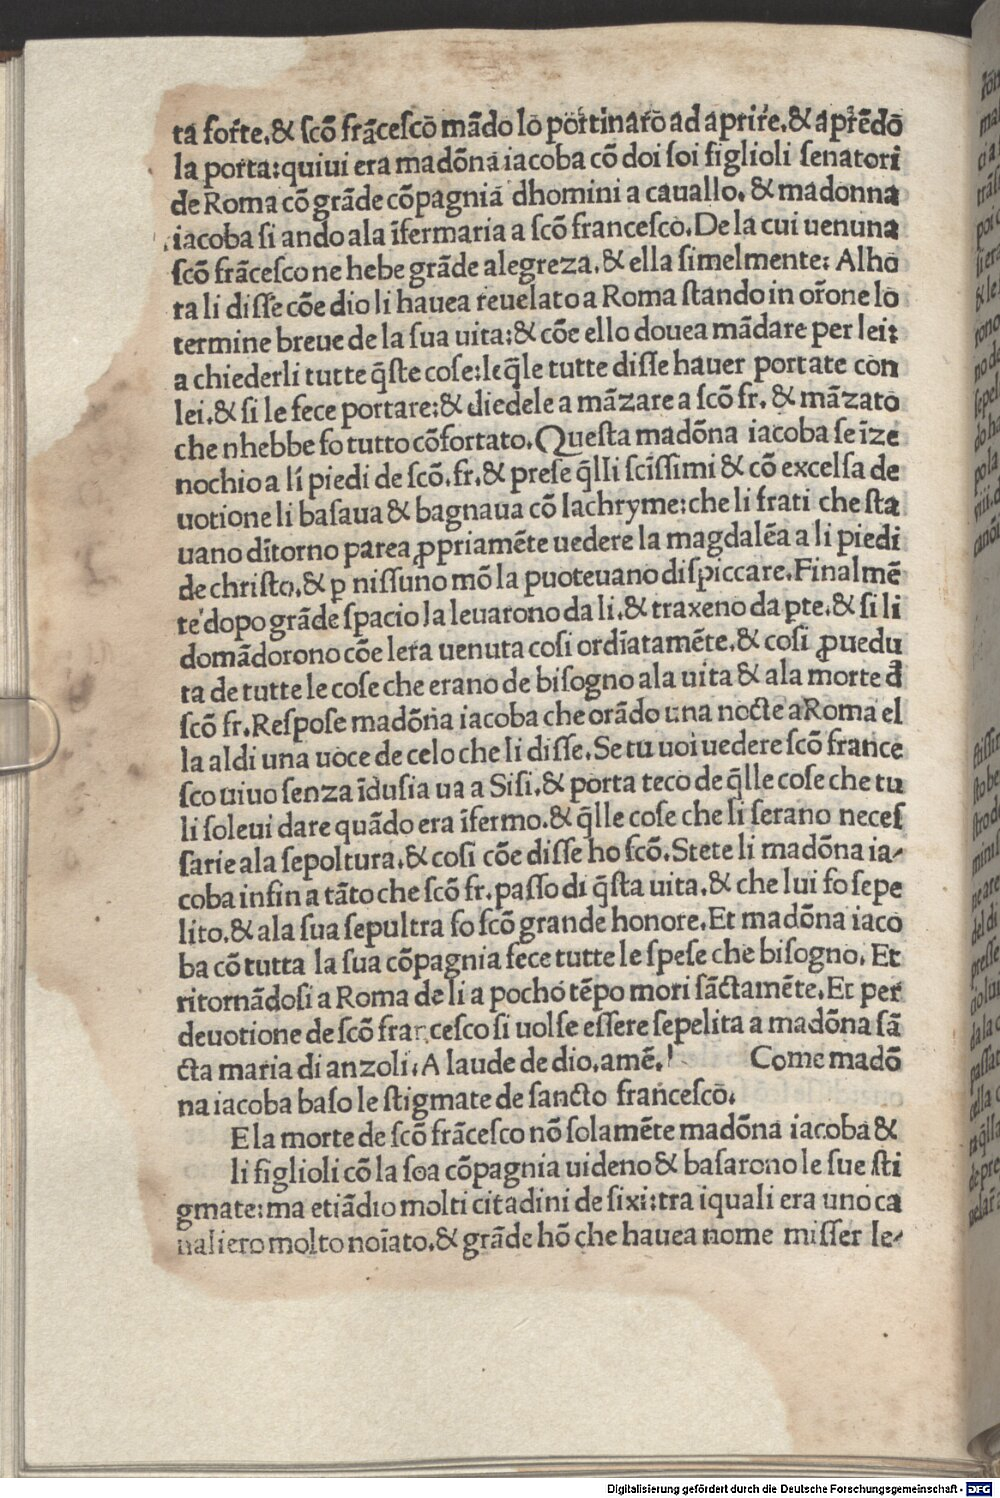 ta forte.& ſcõ frãceſco mãdo lo portinaro ad aprire.& aprẽdo
la porta:quiui era madõna iacoba cõ doi ſoi figlioli ſenatori
de Roma cõ grãde cõpagnia dhomini a cauallo. & madonna
iacoba ſi ando ala ĩfermaria a ſcõ franceſco.De la cui uenuna
ſcõ frãceſco ne hebe grãde alegreza.& ella ſimelmente: Alho
ra li diſſe cõe dio li hauea reuelato a Roma ſtando in orõne lo
termine breue de la ſua uita:& cõe ello douea mãdare per lei:
a chiederli tutte q̃ſte coſe:le q̃le tutte diſſe hauer portate con
lei.& ſi le fece portare:& diedele a mãzare a ſcõ fr. & mãzato
che nhebbe fo tutto cõfortato.Queſta madõna iacoba ſe ĩze
nochio a li piedi de ſcõ.fr.& preſe q̃lli ſcĩſſimi & cõ excelſa de
uotione li baſaua & bagnaua cõ lachryme:che li frati che ſta
uano dĩtorno parea ꝓpriamẽte uedere la magdalẽa a li piedi
de chriſto.& ꝑ niſſuno mõ la puoteuano diſpiccare.Finalmẽ
te dopo grãde ſpacio la leuarono da li.& traxeno da ꝑte.& ſi li
domãdorono cõe lera uenuta coſi ordĩatamẽte.& coſi ꝓuedu
ta de tutte le coſe che erano de biſogno ala uita & ala morte d̃
ſcõ fr.Reſpoſe madõna iacoba che orãdo una nocte a Roma el
la aldi una uoce de celo che li diſſe.Se tu uoi uedere ſcõ france
ſco uiuo ſenza ĩduſia ua a Siſi.& porta teco de q̃lle coſe che tu
li ſoleui dare quãdo era ĩfermo.& q̃lle coſe che li ſerano neceſ
ſarie ala ſepoltura.& coſi cõe diſſe ho ſcõ.Stete li madõna ia-
coba infin a tãto che ſcõ fr.paſſo di q̃ſta uita.& che lui fo ſepe
lito.& ala ſua ſepultra fo ſcõ grande honore.Et madõna iaco
ba cõ tutta la ſua cõpagnia fece tutte le ſpeſe che biſogno. Et
ritornãdoſi a Roma de li a pocho tẽpo mori ſãctamẽte.Et per
deuotione de ſcõ franceſco ſi uolſe eſſere ſepelita a madõna ſã
cta maria di anzoli.A laude de dio.amẽ. Come madõ
na iacoba baſo le ſtigmate de ſancto franceſco.
E la morte de ſcõ frãceſco nõ ſolamẽte madõna iacoba &
li figlioli cõ la ſoa cõpagnia uideno & baſarono le ſue ſti
gmate:ma etiãdio molti citadini de ſixi:tra iquali era uno ca
ualiero molto noĩato.& grãde hõ che hauea nome miſſer le-
Digitalisierung gefördert durch die Deutsche Forschungsgemeinschaft - DFG